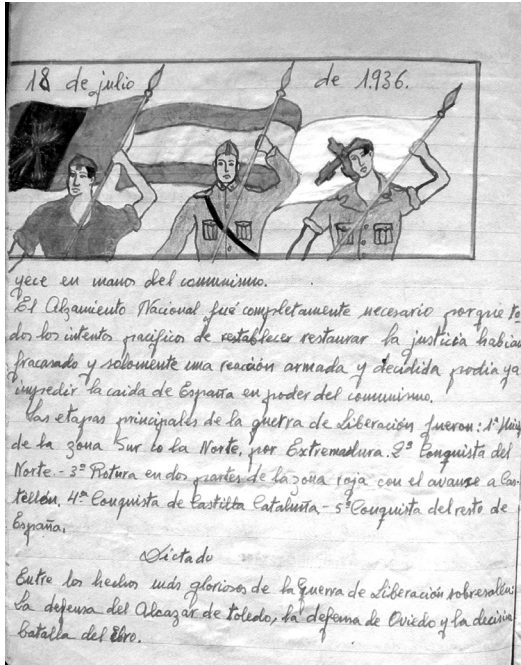 18 de julio de 1.936.
yece en manos del comunismo.
El Alzamiento Nacional fué completamente necesario porque to
dos los intentos pacificos de restablecer restaurar la justicia habian
fracasado y solomente una reacción armada y decidida podia ya
impedir la caida de España en poder del comunismo.
Las etapas principales de la guerra de Liberación fueron: 1ª
de la zona Sur co la Norte, por Extremadura. 2ª Conquista del
Norte.- 3ª Rotura en dos partes de la zona roja con el avance a Cas-
tellón. 4ª Conquista de Castilla Cataluña - 5ª Conquista del resto de
España.
Dictado
Entre los hechos más gloriosos de la guerra de Liberación
La defensa del Alcazar de toledo, la defensa de Oviedo y la
batalla del Ebro.